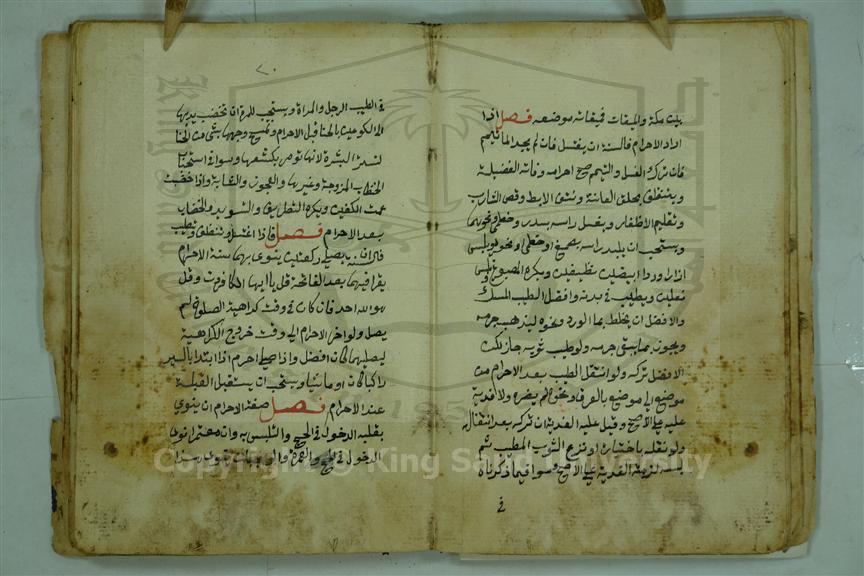 بيت مكة والميقات فميقاته موضعه فصل اذا
اراد الاحرام فالسنة ان يغتسل فان لم يجد الماء تيمم
فان ترك الغسل والتيمم صح احرامه وفاته الفضيلة
ويتنظف بحلق العانة ونتف الابط وقص الشارب
وتقليم الاظفار ويغسل راسه بسدر وخطمي ونحوهما
ويستحب ان يلبد راسه بصمغ او خطمي ونحوه ويلبس
ازارا وردا ابيضين نظيفين ويكره المصبوغ
نعلين ويطيب في بدنه وافضل الطيب المسك
والافضل ان يخلط بماء الورد ونحوه ليذهب جرمه
ويجوز بما يبقى جرمه ولو طيب ثوبه جاز لكن
الافضل تركه ولو انتقل الطيب بعد الاحرام من
موضع الى موضع بالعرق ونحوه لم يضره ولا فدية
عليه على الاصح وقيل عليه الفدية ان تركه بعد انتقاله
ولو نقله باختياره او نزع الثوب المطيب ثم
لبسه لزمته الفدية على الاصح وسوا فيما ذكرناه
في
في الطيب الرجل والمراة ويستحب للمراة ان تخضب يديها
الى الكوعين بالحنا قبل الاحرام وتمسح وجهها بشي من الحنا
لتستر البشرة لانها تومر بكشفها وسوا في استحباب
الخضاب المزوجة وغيرها والعجوز والشابة واذا خضبت
عمت الكفين ويكره التطريف والتسويد والخضاب
بعد الاحرام فصل فاذا اغتسل وتنظف وتطيب
فالسنة ان يصلي ركعتين ينوي بهما سنة الاحرام
يقرا فيهما بعد الفاتحة قل يا ايها الكافرون وقل
هو الله احد فان كان في وقت كراهية الصلوة لم
يصل ولو اخر الاحرام الى وقت خروج الكراهية
ليصليهما كان افضل واذا صلى احرم اذا ابتدا بالسير
راكبا كان او ماشيا ويستحب ان يستقبل القبلة
عند الاحرام فصل صفة الاحرام ان ينوي
بقلبه الدخول في الحج والتلبس به وان معتمرا نوى
الدخول في
Copyright © King Saud University